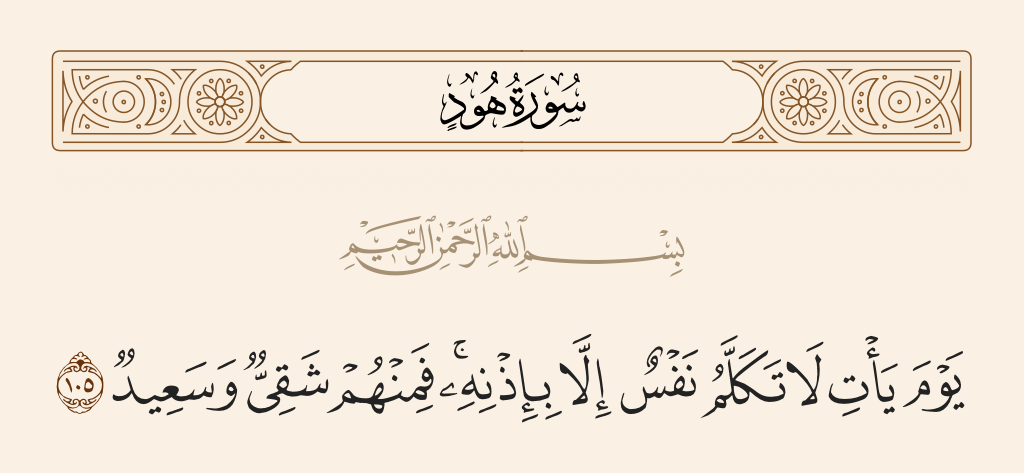 سُورَةُ هُودٍ
بِسْمِ ٱللَّهِ ٱلرَّحْمَٰنِ ٱلرَّحِيمِ
يَوْمَ يَأْتِ لَا تَكَلَّمُ نَفْسٌ إِلَّا بِإِذْنِهِۦ ۚ فَمِنْهُمْ شَقِىٌّ وَسَعِيدٌ ١٠٥